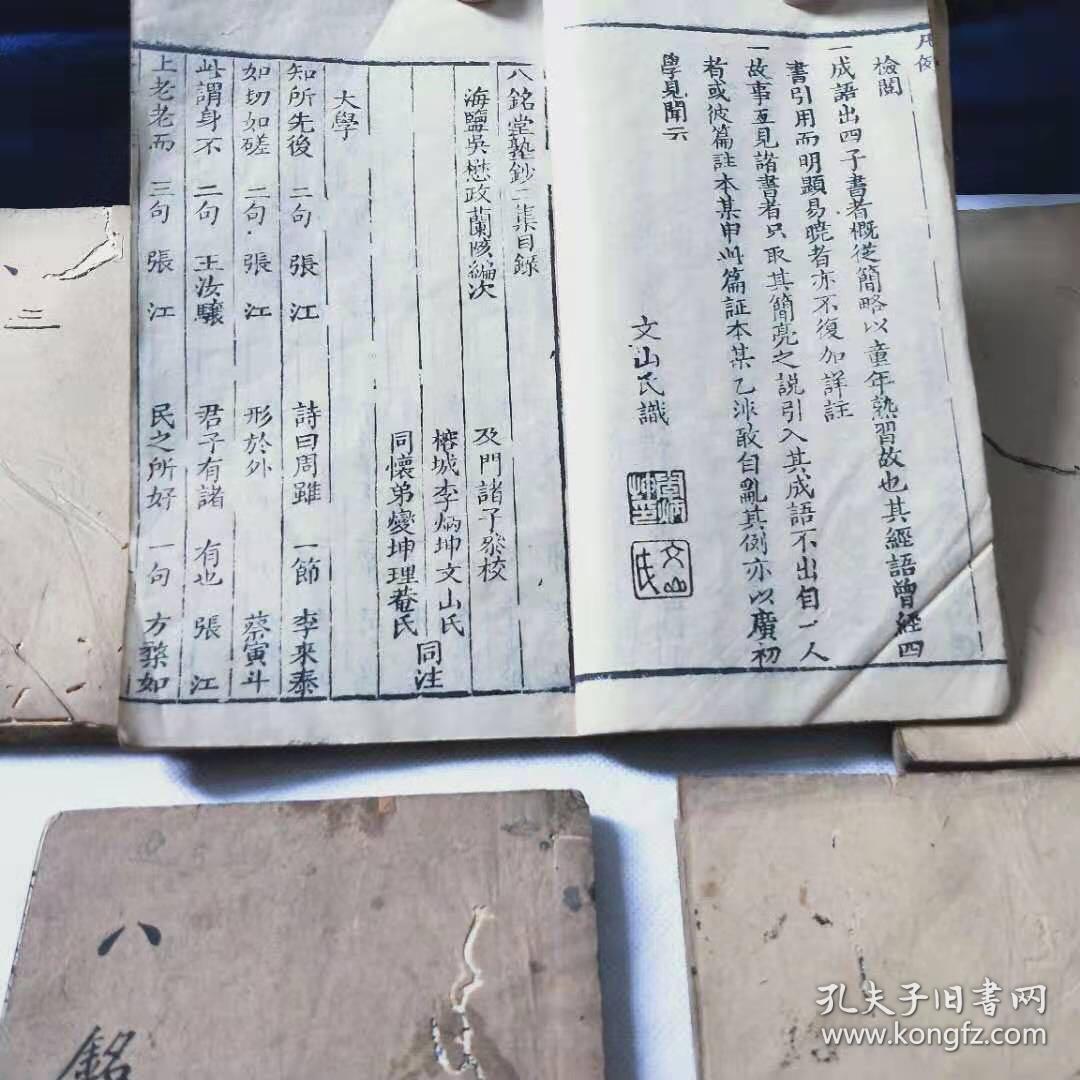 凡例
檢閱
一成語出四子書者概從簡略以童年熟習故也其經語曾經四
書引用而明顯易曉者亦不復加詳註
一故事互見諸書者只取其簡亮之説引入其成語不出自一人
者或彼篇註本某甲此篇証本某乙非敢自亂其例亦以廣初
學見聞云
文山氏識
文山氏
八銘堂塾鈔二集目錄
海鹽吳懋政蘭陔編次
及門諸子參校
榕城李炳坤文山氏
同懷弟燮坤理菴氏
同注
大學
知所先後 二句 張江 詩曰周雖 一節 李來泰
如切如磋 二句 張江 形於外 蔡寅斗
此謂身不 二句 王汝驤 君子有諸 有也 張江
上老老而 三句 張江 民之所好 一句 方楘如
二
八銘
孔夫子旧书网
www.kongfz.com